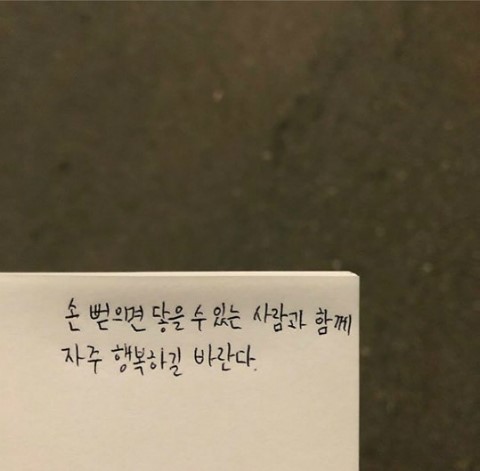 손 뻗으면 닿을 수 있는 사람과 함께
자주 행복하길 바란다.